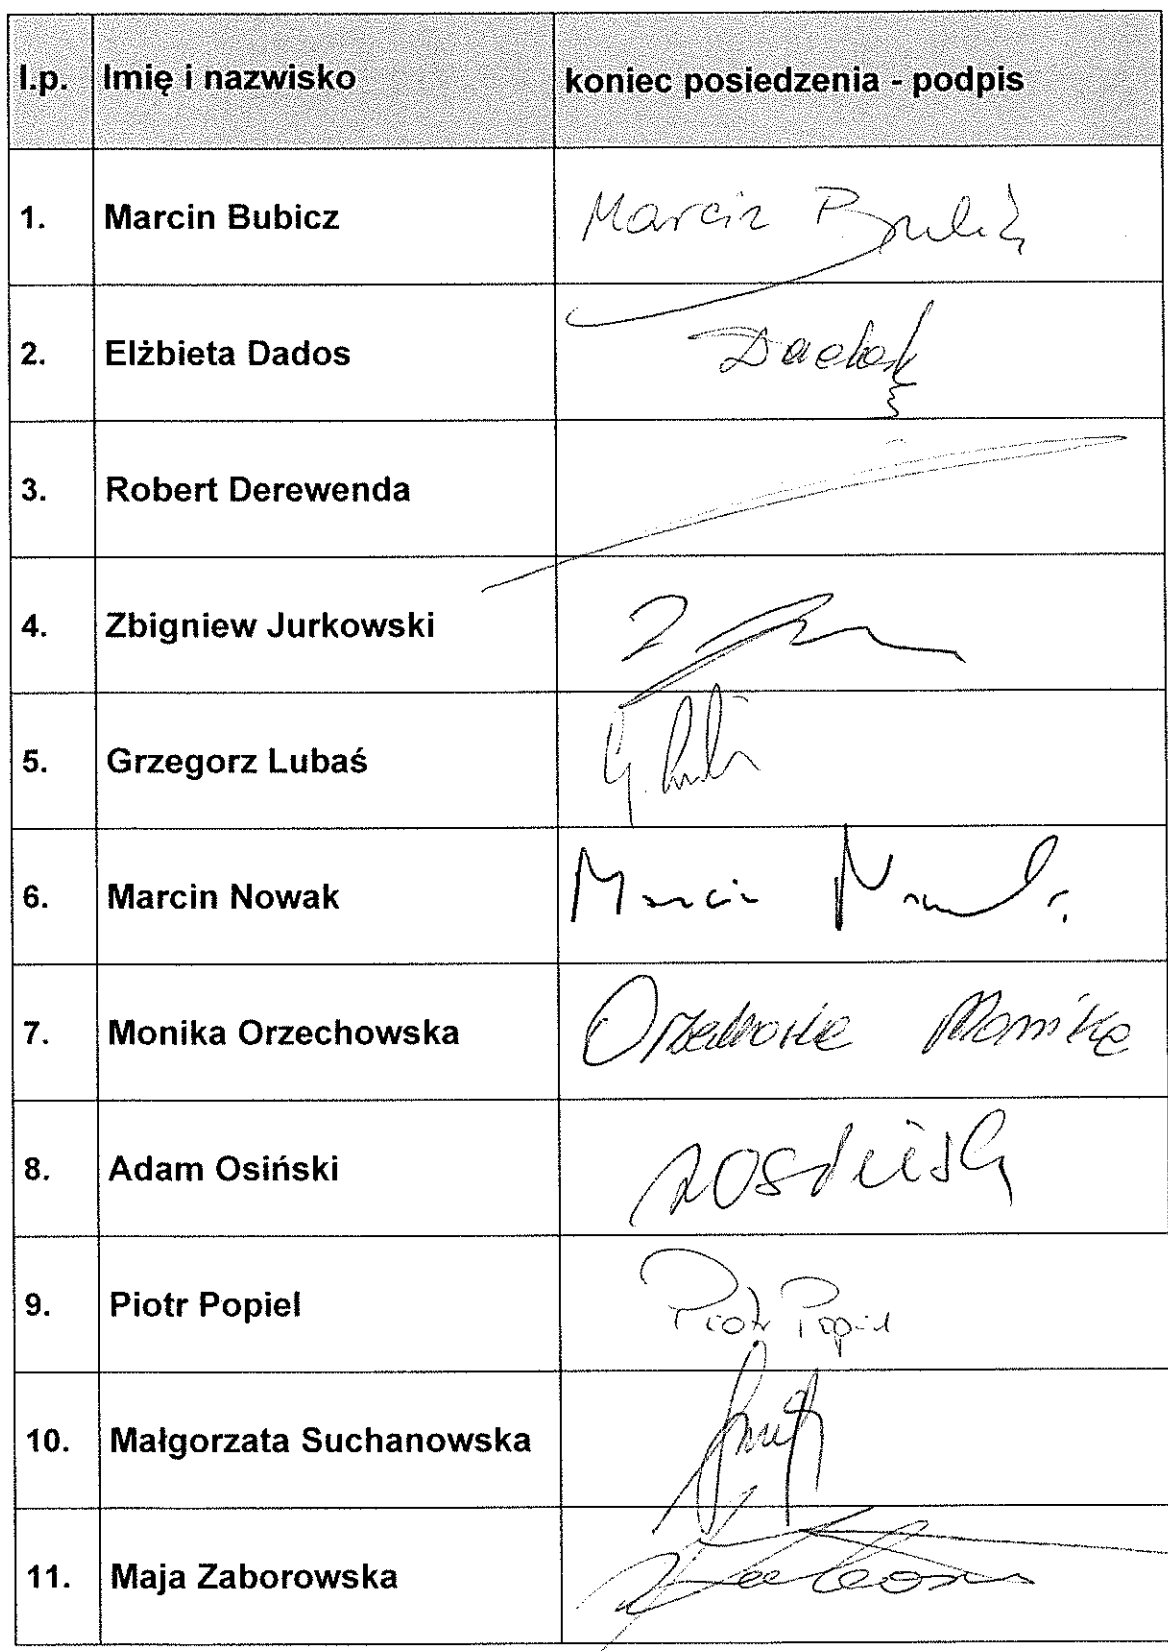 l.p. Imię i nazwisko koniec posiedzenia - podpis
1. Marcin Bubicz Marcin Bubicz
2. Elżbieta Dados Dados
3. Robert Derewenda
4. Zbigniew Jurkowski
5. Grzegorz Lubaś
6. Marcin Nowak Marcin Nowak
7. Monika Orzechowska Orzechowska Monika
8. Adam Osiński AOsiński
9. Piotr Popiel Piotr Popiel
10. Małgorzata Suchanowska
11. Maja Zaborowska